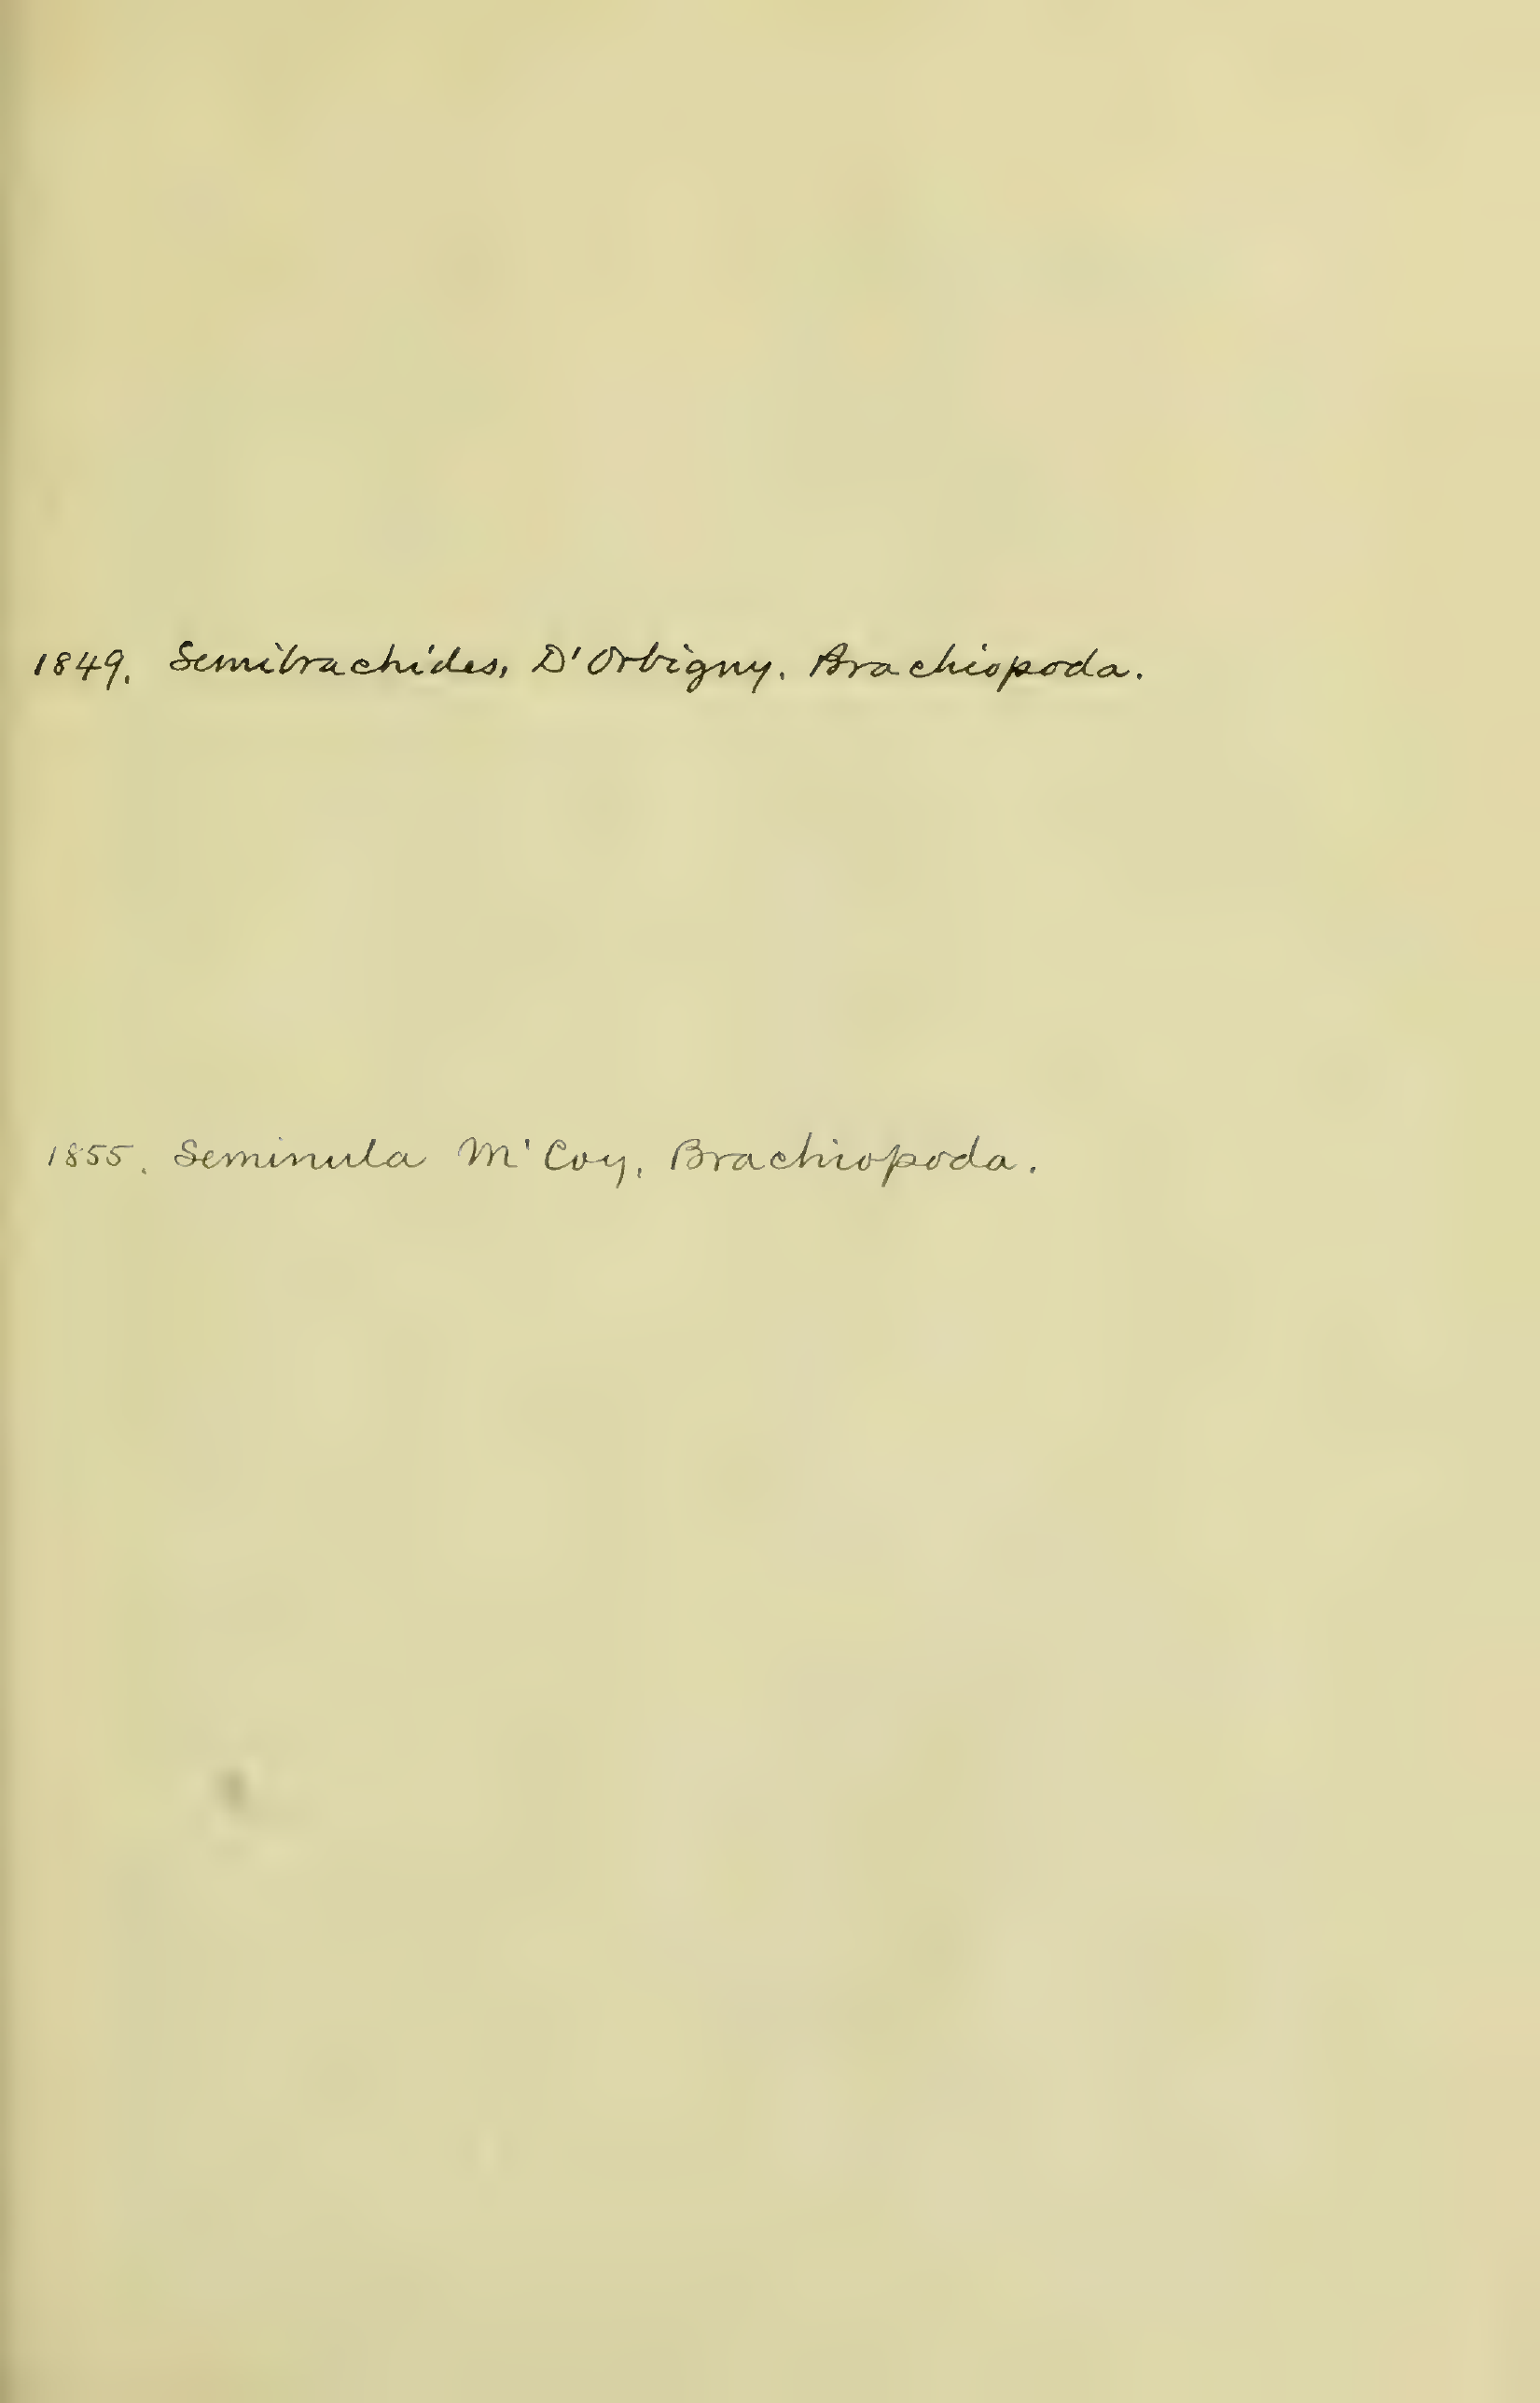 1849. Semibrachides, D'Orbigny. Brachiopoda.
1855. Seminula M'Coy, Brachiopoda.